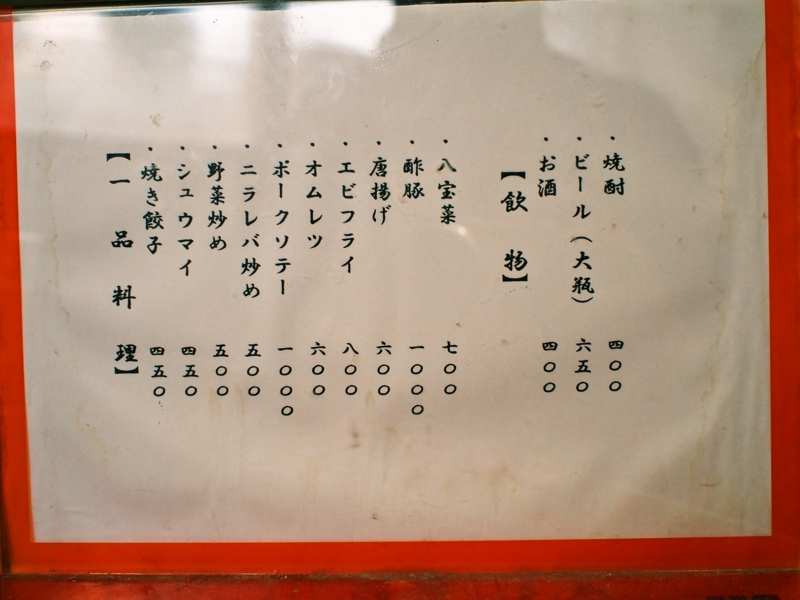 【一品料理】
・焼き餃子 四五〇
・シュウマイ 四五〇
・野菜炒め 五〇〇
・ニラレバ炒め 五〇〇
・ポークソテー 一〇〇〇
・オムレツ 六〇〇
・エビフライ 八〇〇
・唐揚げ 六〇〇
・酢豚 一〇〇〇
・八宝菜 七〇〇
【飲物】
・お酒 四〇〇
・ビール（大瓶） 六五〇
・焼酎 四〇〇